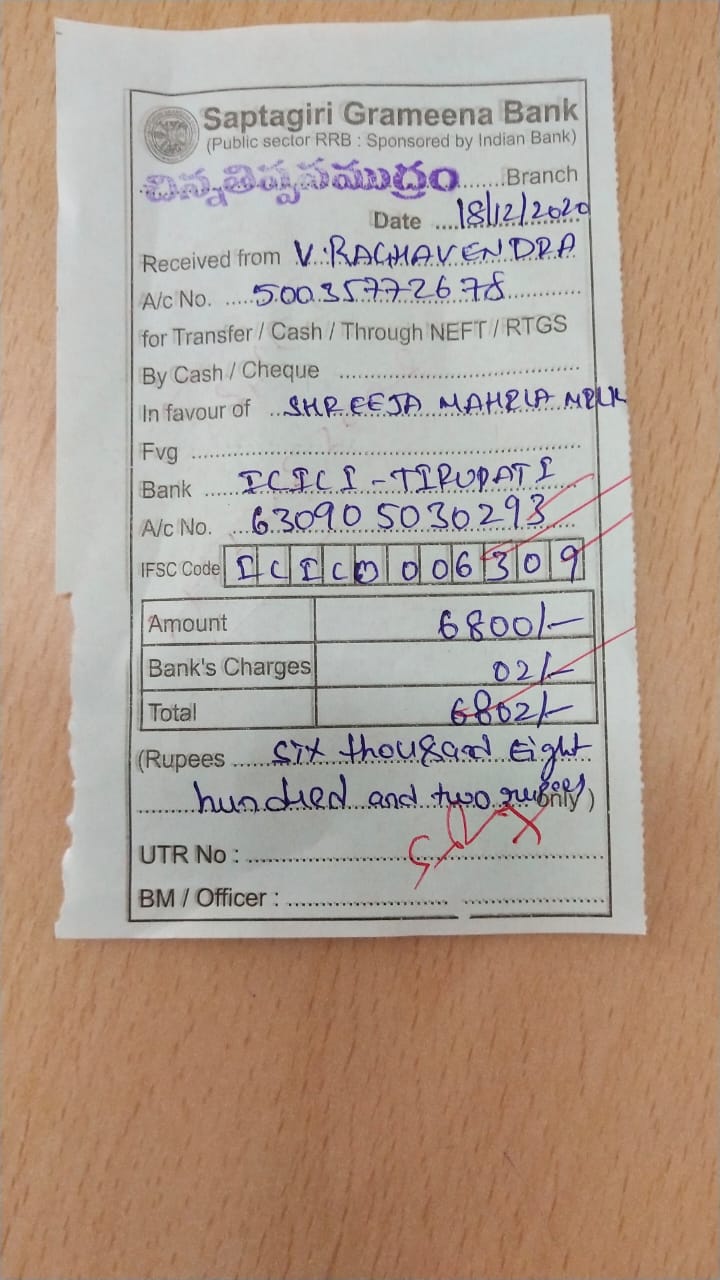 Saptagiri Grameena Bank
(Public sector RRB : Sponsored by Indian Bank)
చిన్నతిప్పసముద్రం.......Branch
Date ....18/12/2020
Received from V. RAGHAVENDRA
A/c No. .....50035772678
for Transfer / Cash / Through NEFT / RTGS
By Cash / Cheque ..........
In favour of ...SHREEJA MAHILA MILK
Fvg ..........
Bank ......ICICI - TIRUPATI
A/c No. ....630905030293
IFSC Code ICIC0006309
Amount 6800/-
Bank's Charges 02/-
Total 6802/-
(Rupees .....Six thousand Eight
hundred and two rupees only)
UTR No : ..........
BM / Officer : ..........